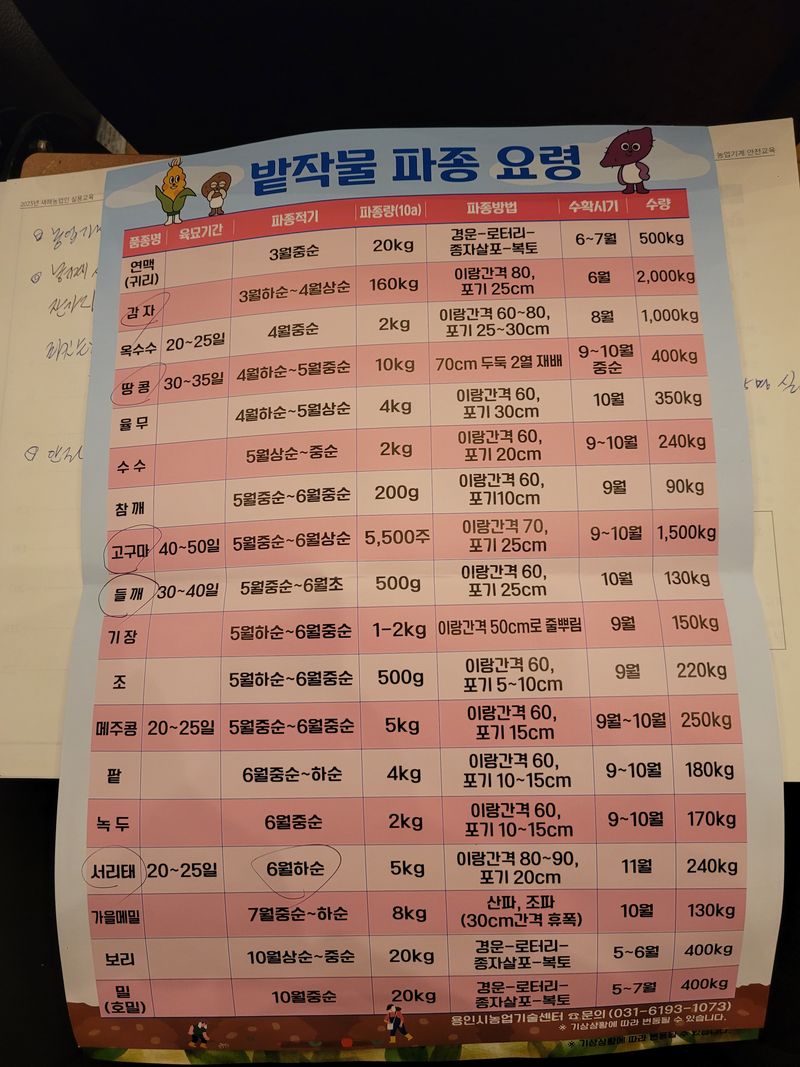 2023년 새해농업인 실용교육
농업기계 안전교육
밭작물 파종 요령
품종명 육묘기간 파종적기 파종량(10a) 파종방법 수확시기 수량
연맥
(귀리) 3월중순 20kg 경운-로터리-
종자살포-복토 6~7월 500kg
감자 3월하순~4월상순 160kg 이랑간격 80,
포기 25cm 6월 2,000kg
옥수수 20~25일 4월중순 2kg 이랑간격 60~80,
포기 25~30cm 8월 1,000kg
땅콩 30~35일 4월하순~5월중순 10kg 70cm 두둑 2열 재배 9~10월
중순 400kg
율무 4월하순~5월상순 4kg 이랑간격 60,
포기 30cm 10월 350kg
수수 5월상순~중순 2kg 이랑간격 60,
포기 20cm 9~10월 240kg
참깨 5월중순~6월중순 200g 이랑간격 60,
포기10cm 9월 90kg
고구마 40~50일 5월중순~6월상순 5,500주 이랑간격 70,
포기 25cm 9~10월 1,500kg
들깨 30~40일 5월중순~6월초 500g 이랑간격 60,
포기 25cm 10월 130kg
기장 5월하순~6월중순 1-2kg 이랑간격 50cm로 줄뿌림 9월 150kg
조 5월하순~6월중순 500g 이랑간격 60,
포기 5~10cm 9월 220kg
메주콩 20~25일 5월중순~6월중순 5kg 이랑간격 60,
포기 15cm 9월~10월 250kg
팥 6월중순~하순 4kg 이랑간격 60,
포기 10~15cm 9~10월 180kg
녹두 6월중순 2kg 이랑간격 60,
포기 10~15cm 9~10월 170kg
서리태 20~25일 6월하순 5kg 이랑간격 80~90,
포기 20cm 11월 240kg
가을메밀 7월중순~하순 8kg 산파, 조파
(30cm간격 휴폭) 10월 130kg
보리 10월상순~중순 20kg 경운-로터리-
종자살포-복토 5~6월 400kg
밀
(호밀) 10월중순 20kg 경운-로터리-
종자살포-복토 5~7월 400kg
용인시농업기술센터 ☎문의 (031-6193-1073)
※ 기상상황에 따라 변동될 수 있습니다.
※ 기상상황에 따라 변동될 수 있습니다.